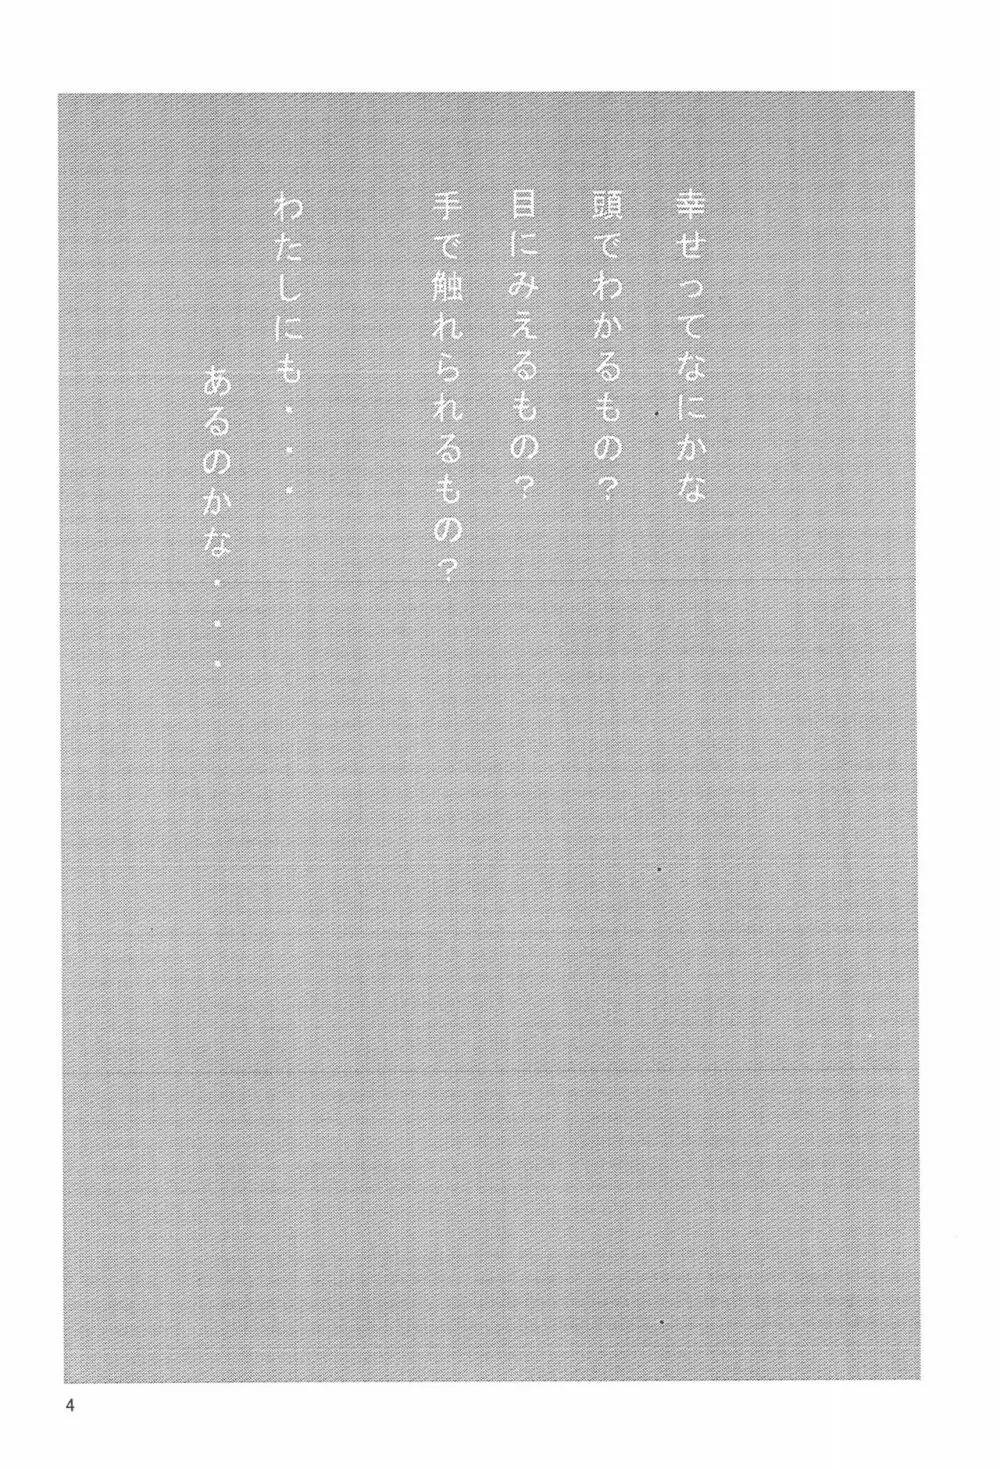 幸せってなにかな
頭でわかるもの？
目にみえるもの？
手で触れられるもの？
わたしにも・・・
あるのかな・・・
4